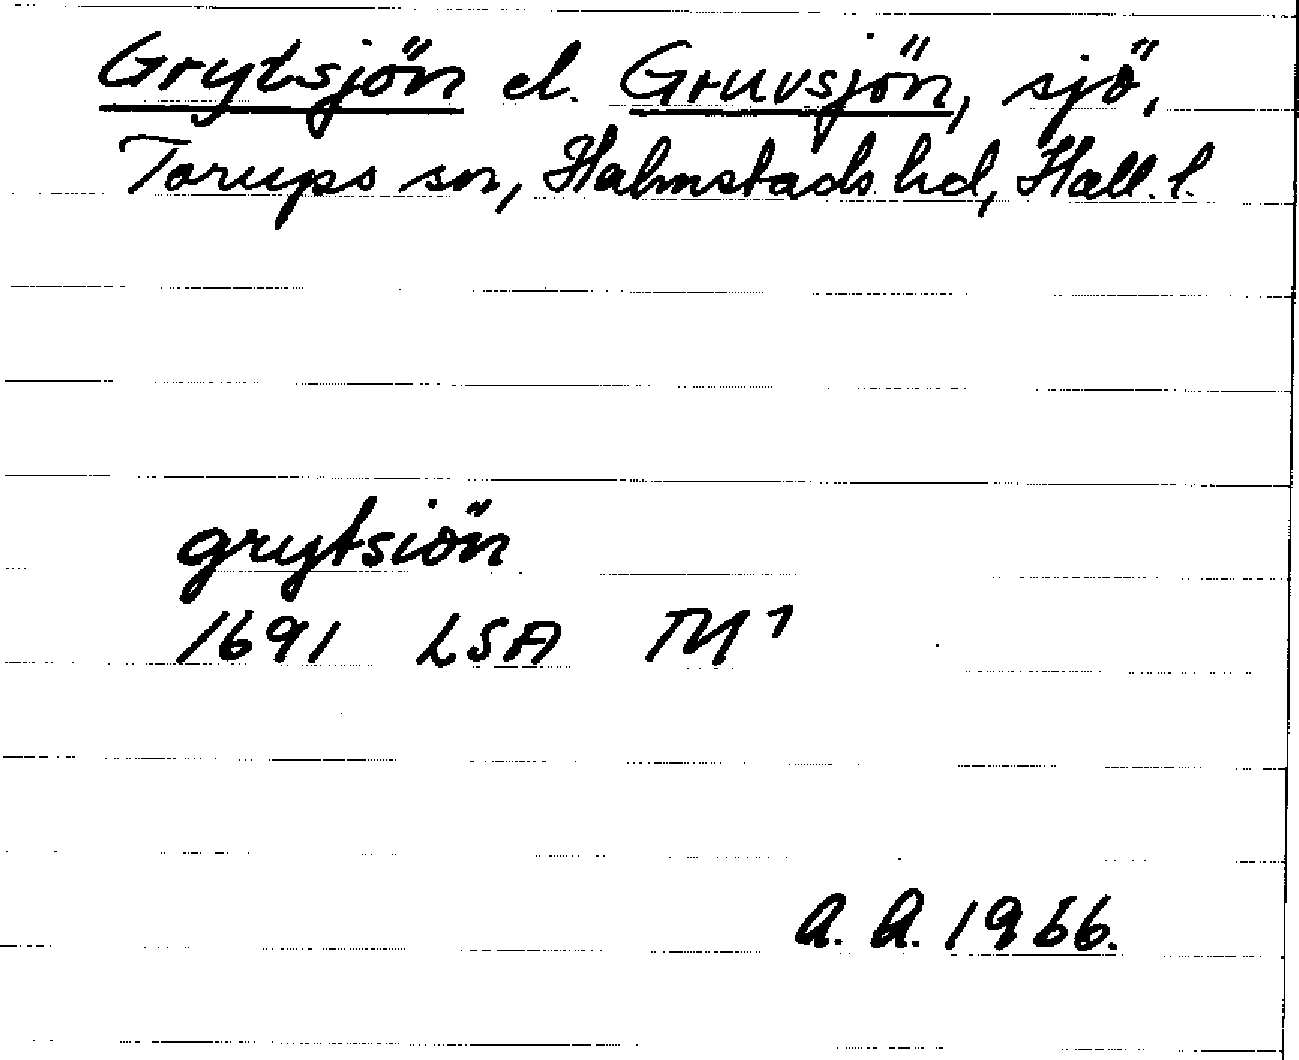 Grytsjön el. Gruvsjön, sjö,
Torups sn, Halmstads hd, Hall. l.
grytsiön
1691 LSA
a. a. 1966.